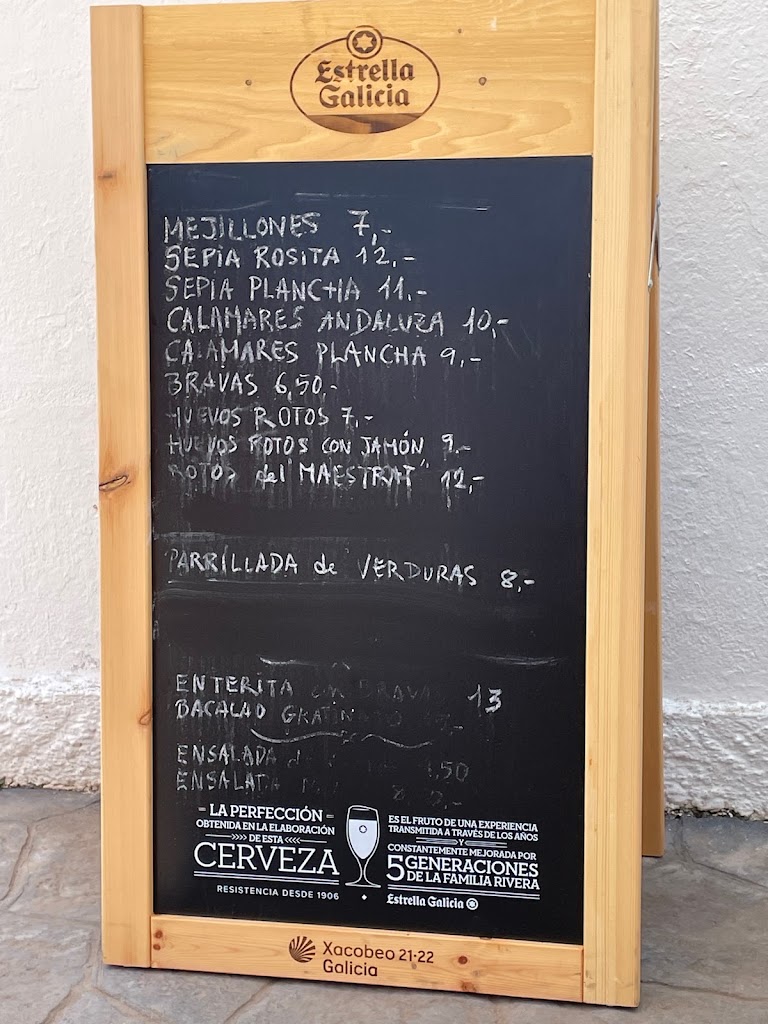 Estrella
Galicia
MEJILLONES 7,-
SEPIA ROSITA 12.-
SEPIA PLANCHA 11.-
CALAMARES ANDALUZA 10,-
CALAMARES PLANCHA 9,-
BRAVAS 6,50,-
HUEVOS ROTOS 7,-
HUEVOS ROTOS CON JAMÓN 9,-
ROTOS del "MAESTRAT" 12,-
PARRILLADA de VERDURAS 8,-
ENTERITA con BRAVAS 13
BACALAO GRATINADO
ENSALADA
ENSALADA
- LA PERFECCIÓN -
OBTENIDA EN LA ELABORACIÓN
>>>> DE ESTA <<<<
CERVEZA
RESISTENCIA DESDE 1906
ES EL FRUTO DE UNA EXPERIENCIA
TRANSMITIDA A TRAVÉS DE LOS AÑOS
Y
CONSTANTEMENTE MEJORADA POR
5 GENERACIONES
DE LA FAMILIA RIVERA
Estrella Galicia
Xacobeo 21·22
Galicia